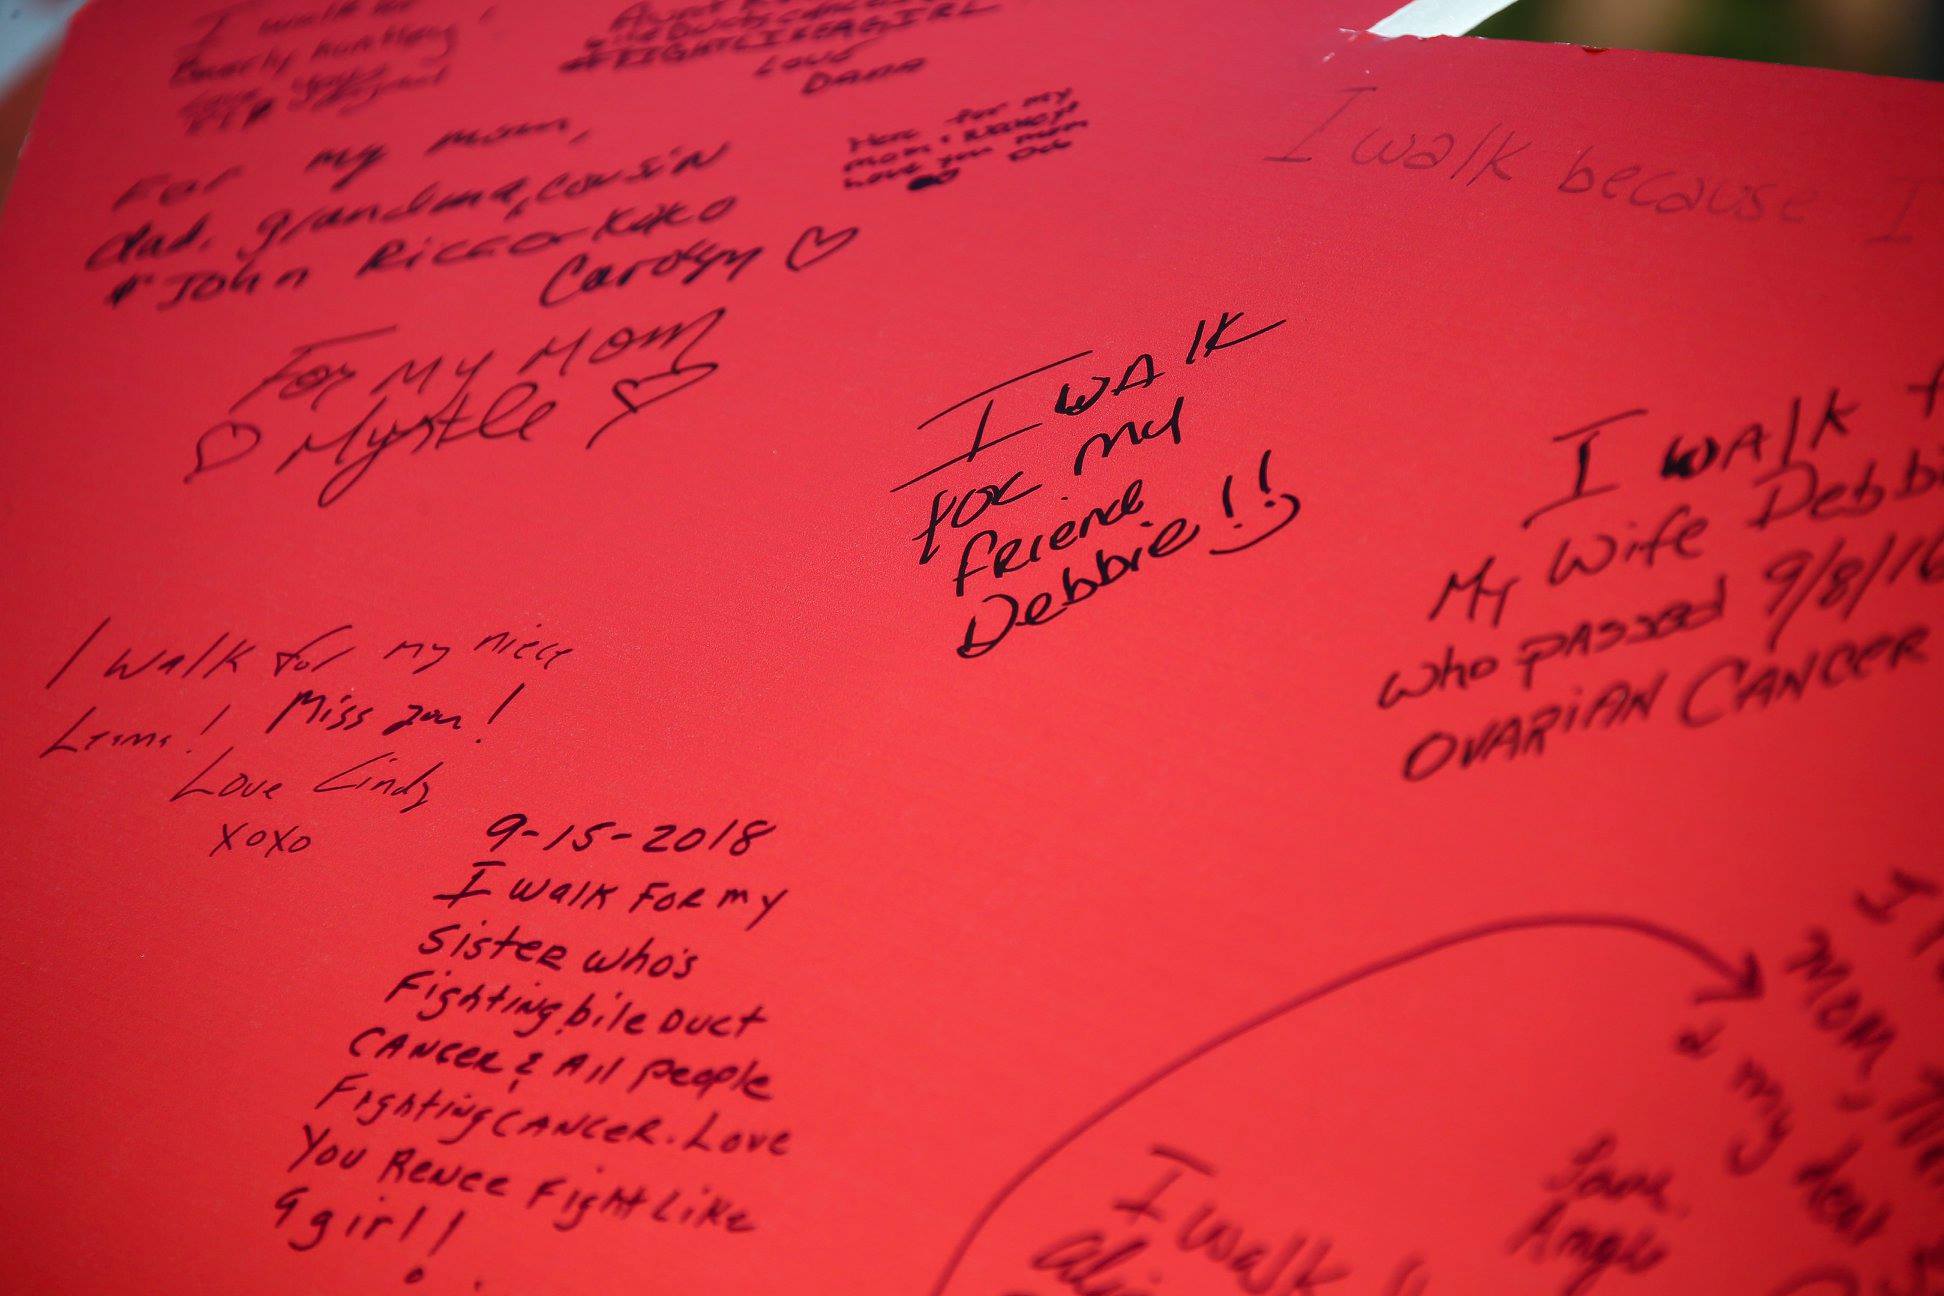 I walk for
Beverly Huntley!
#FIGHTLIKEAGIRL
Love
DAMA
For my mom,
dad, grandma, cousin
John Ricco-KoKo
Carolyn
Here for my
mom
Love you mom
For My Mom
Myrtle
I walk because I
I WALK
for my
Friend
Debbie!!
I WALK
My Wife Debbi
who passed 9/8/16
OVARIAN CANCER
I walk for my niece
Miss you!
Love Cindy
xoxo
9-15-2018
I walk For my
Sister who's
Fighting bile Duct
CANCER & All People
Fighting CANCER. Love
You Renee Fight Like
a girl!!
I
Mom,
& my dear
Love
Angie
I walk